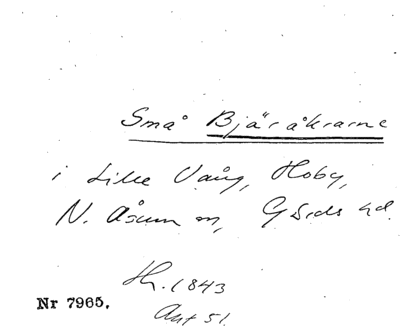 Små Bjäråkrarne
i Lille Vång, Hoby,
N. Åsum sn, Gärds hd.
Hr. 1843
Akt 51.
Nr 7965.